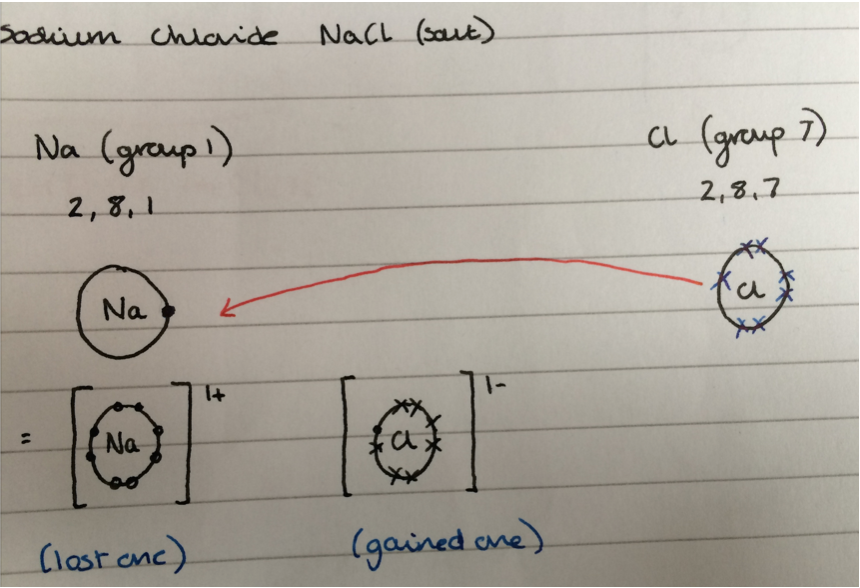 Sodium chloride NaCl (salt)
Na (group 1) Cl (group 7)
2, 8, 1 2, 8, 7
Na Cl
= [Na] 1+ [Cl] 1-
(lost one) (gained one)